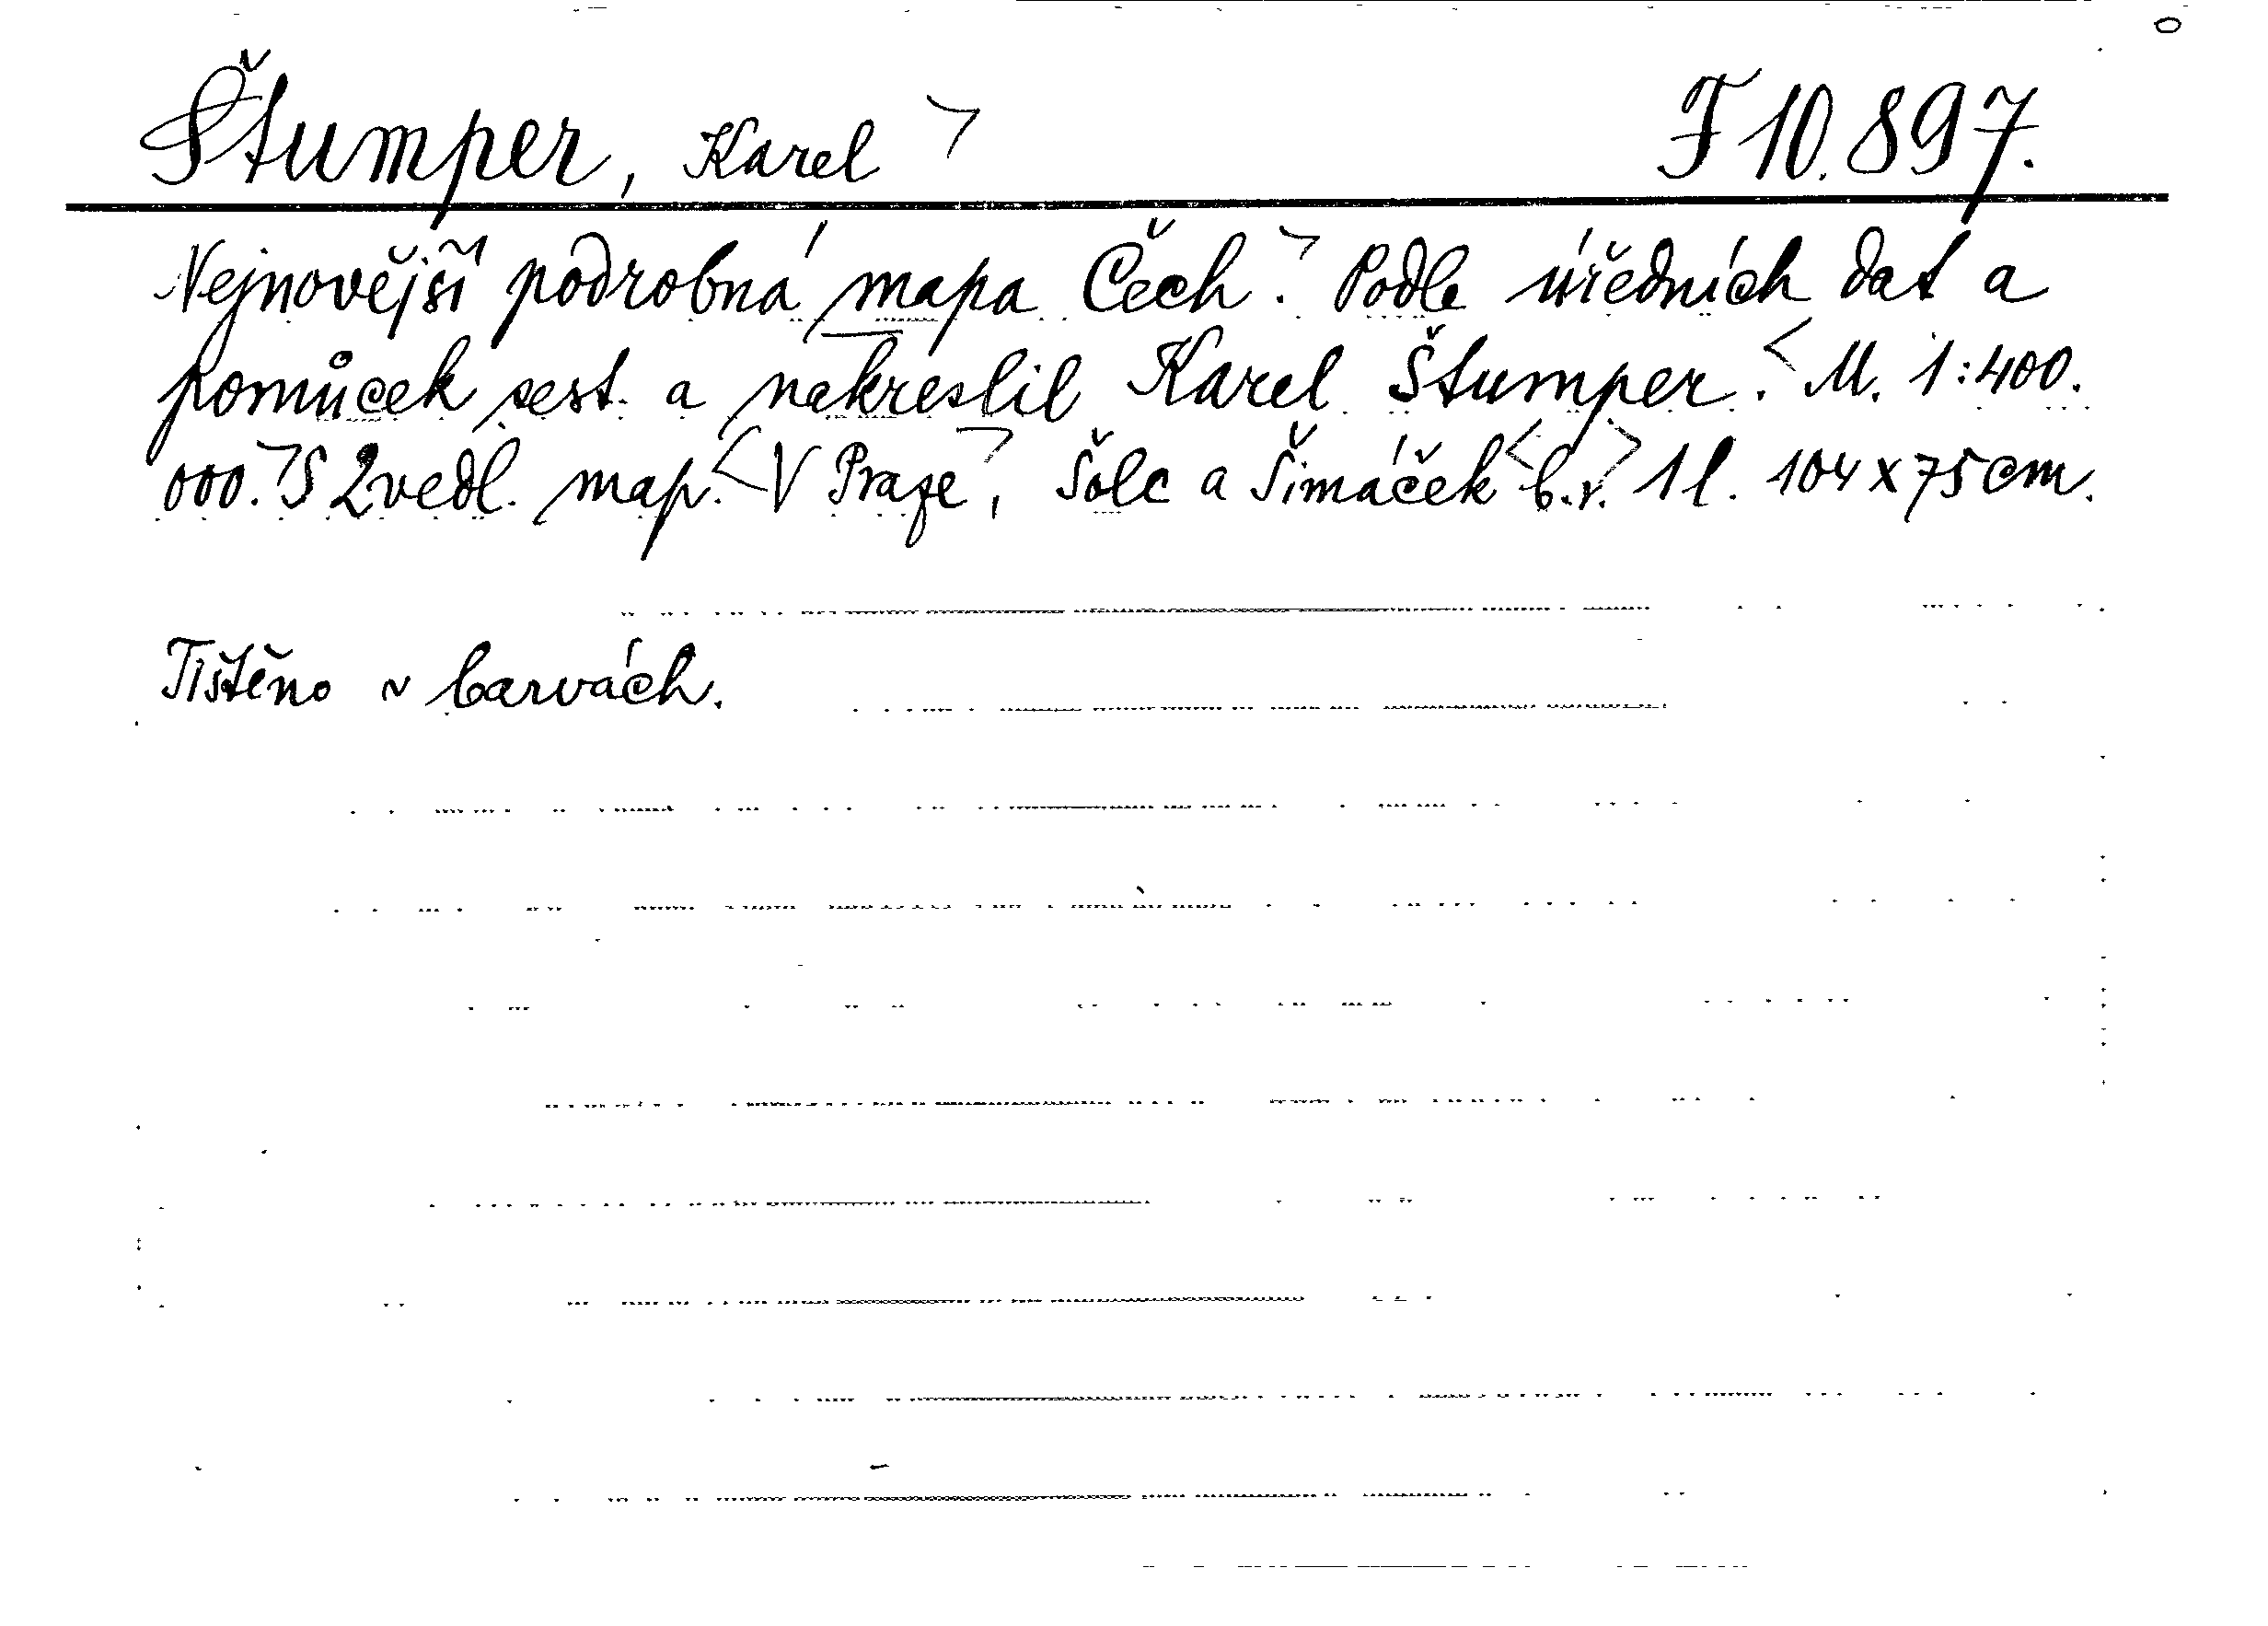 Štumper, Karel F 10.897.
Nejnovější podrobná mapa Čech. Podle úředních dat a
pomůcek sest. a nakreslil Karel Štumper. M. 1:400.
000. S 2 vedl. map. V Praze, Šolc a Šimáček b.r. 1 l. 104 x 75 cm.
Tištěno v barvách.